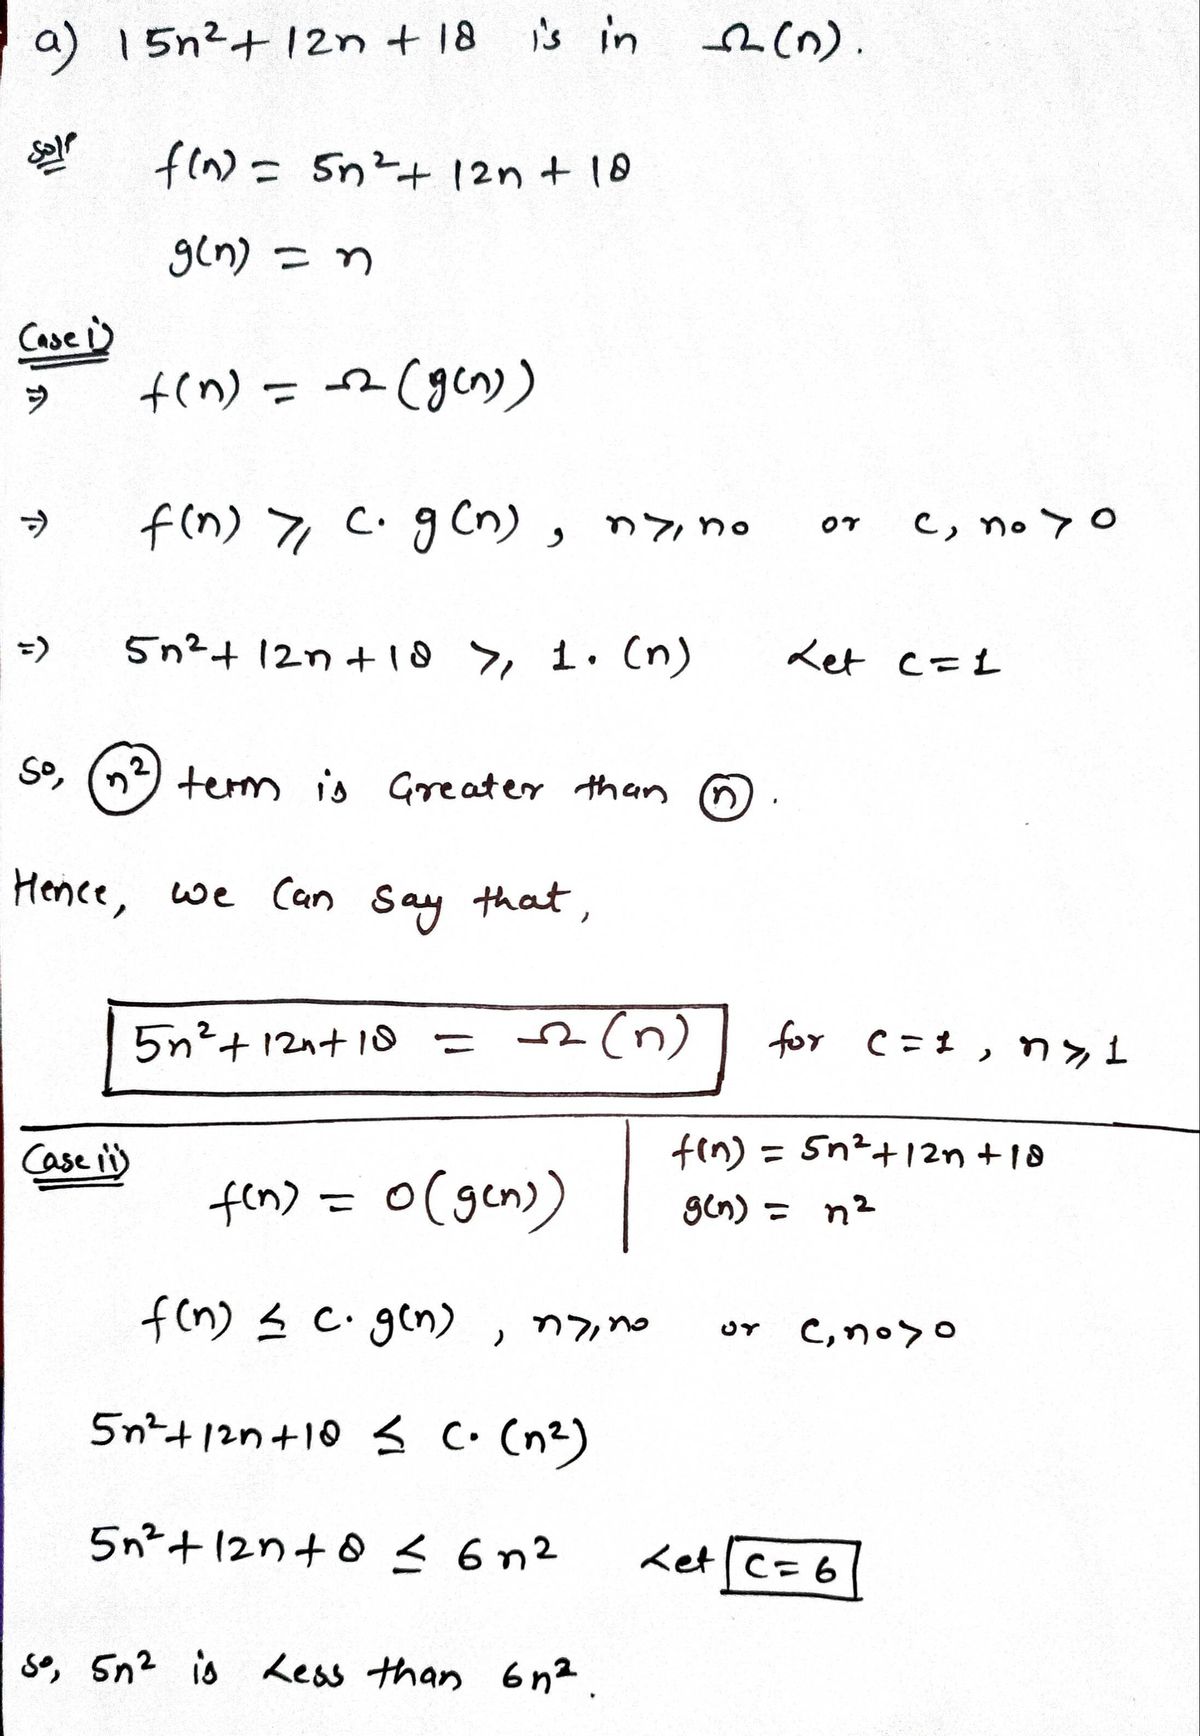 a) 15n²+12n+18 is in Ω(n).
Solⁿ f(n) = 5n²+12n+18
g(n) = n
Case i)
⇒ f(n) = Ω(g(n))
⇒ f(n) ≥ c. g(n), n≥n₀ or c, n₀>0
⇒ 5n²+12n+18 ≥ 1. (n) Let c=1
So, n² term is Greater than n.
Hence, we Can Say that,
5n²+12n+18 = Ω(n) for c=1, n≥1
Case ii) f(n) = O(g(n))
f(n) = 5n²+12n+18
g(n) = n²
f(n) ≤ c. g(n), n≥n₀ or c,n₀>0
5n²+12n+18 ≤ c. (n²)
5n²+12n+8 ≤ 6n² Let c=6
so, 5n² is Less than 6n².